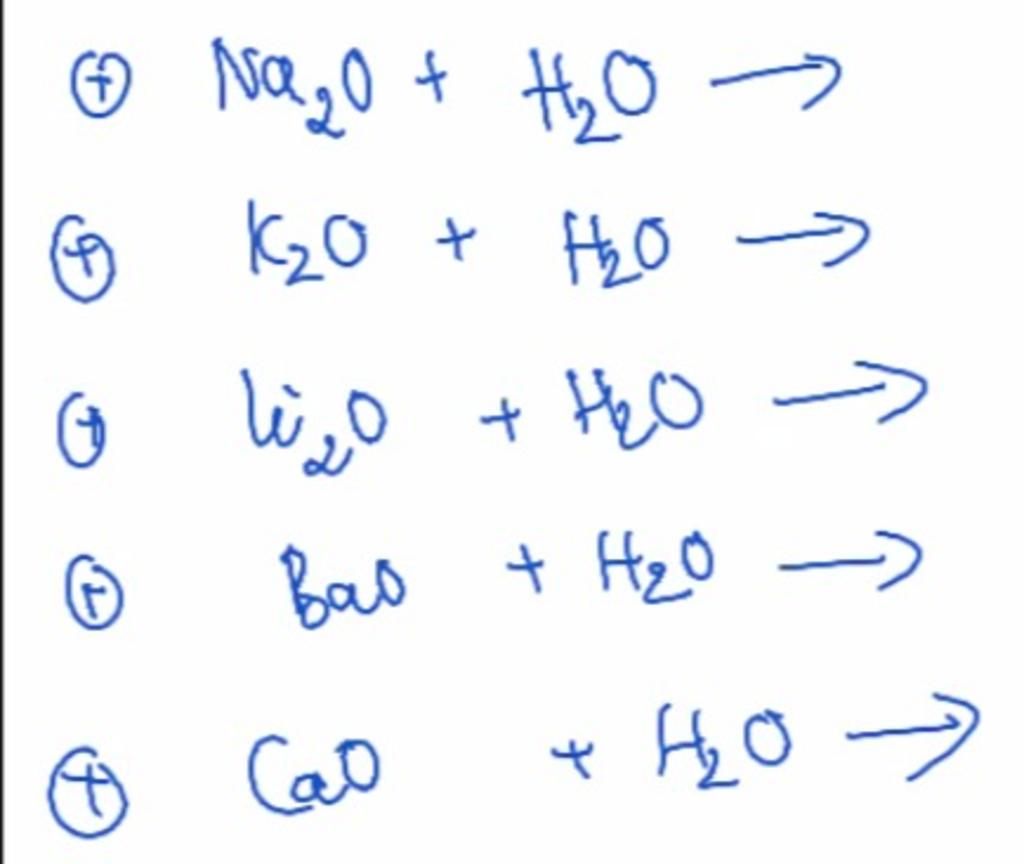 ⊕ Na₂O + H₂O →
⊕ K₂O + H₂O →
⊕ Li₂O + H₂O →
⊕ BaO + H₂O →
⊕ CaO + H₂O →